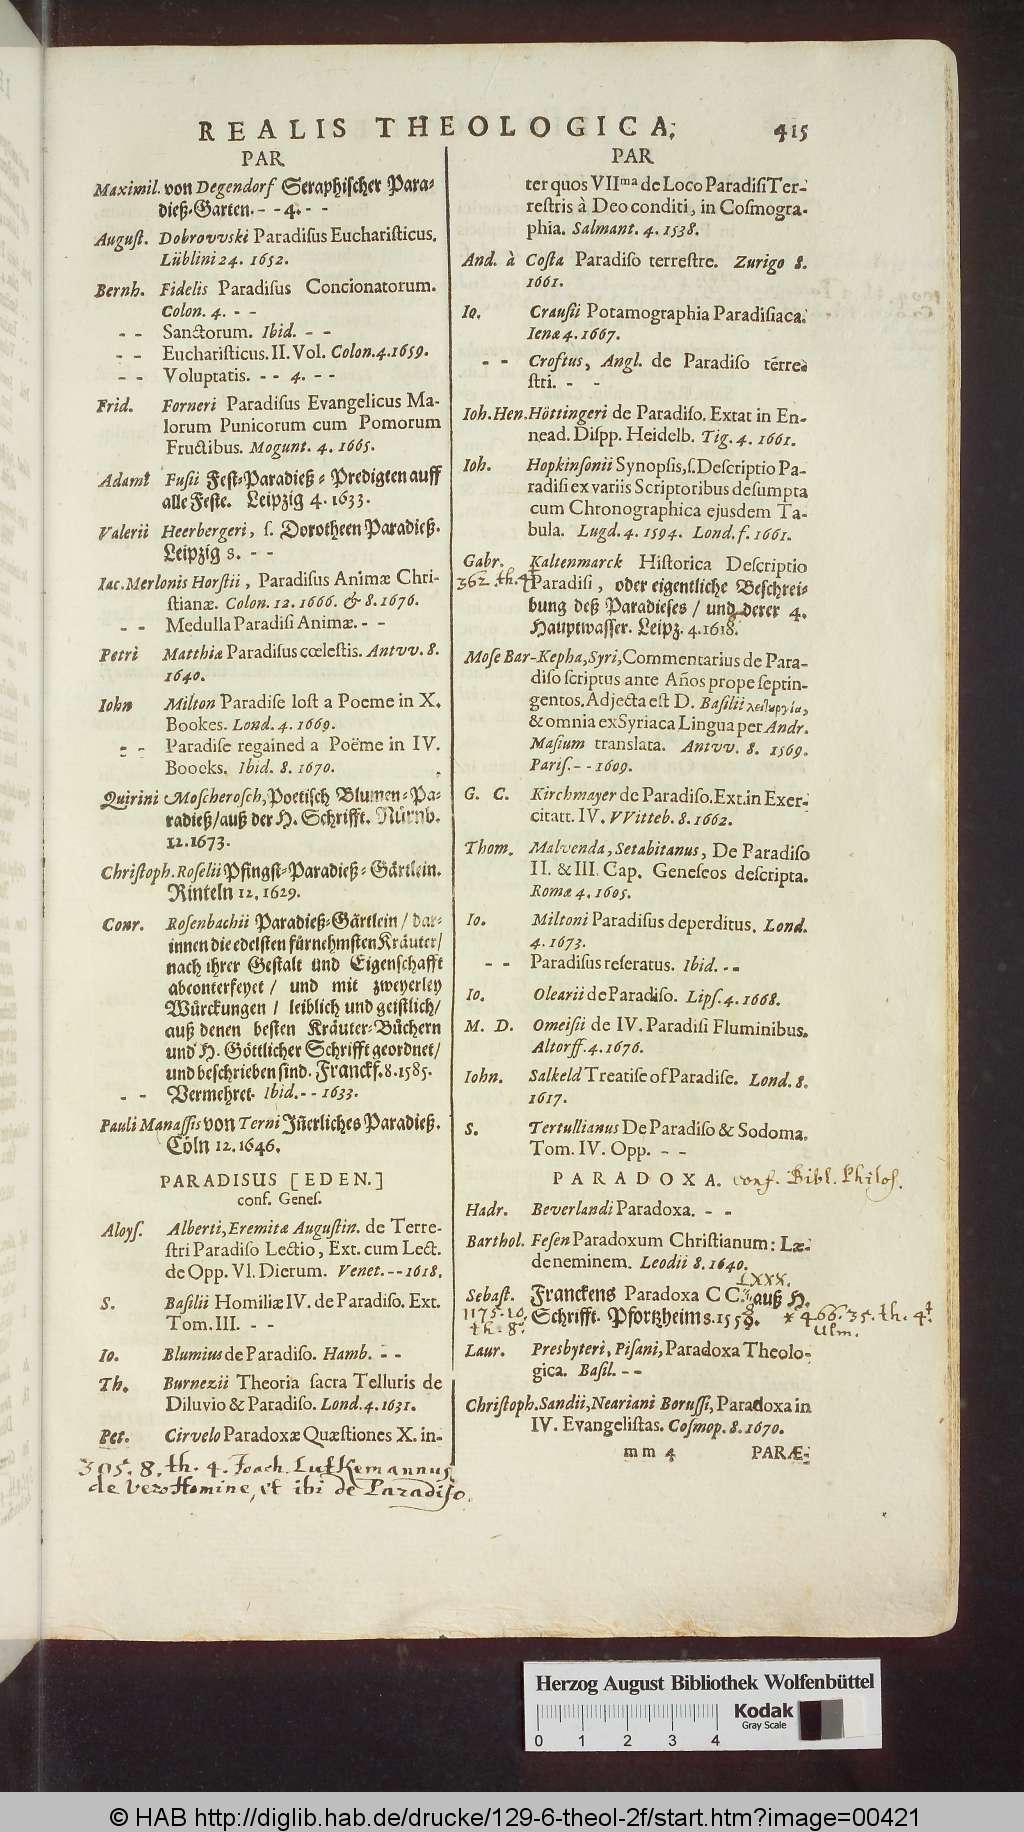 REALIS THEOLOGICA. 415
PAR
Maximil. von Degendorf Seraphischer Para-
dieß-Garten. - - 4. - -
August. Dobrovvski Paradisus Eucharisticus.
Lüblini 24. 1652.
Bernh. Fidelis Paradisus Concionatorum.
Colon. 4. - -
- - Sanctorum. Ibid. - -
- - Eucharisticus. II. Vol. Colon. 4. 1659.
- - Voluptatis. - - 4. - -
Frid. Forneri Paradisus Evangelicus Ma-
lorum Punicorum cum Pomorum
Fructibus. Mogunt. 4. 1665.
Adami Fusii Fest-Paradieß-Predigten auff
alle Feste. Leipzig 4. 1633.
Valerii Heerbergeri, s. Dorotheen Paradieß.
Leipzig 8. - -
Iac. Merlonis Horstii, Paradisus Animæ Chri-
stianæ. Colon. 12. 1666. & 8. 1676.
- - Medulla Paradisi Animæ. - -
Petri Matthiæ Paradisus cœlestis. Antvv. 8.
1640.
Iohn Milton Paradise lost a Poeme in X.
Bookes. Lond. 4. 1669.
- - Paradise regained a Poëme in IV.
Boocks. Ibid. 8. 1670.
Quirini Moscherosch, Poetisch Blumen-Pa-
radieß/ auß der H. Schrifft. Nürnb.
12. 1673.
Christoph. Roselii Pfingst-Paradieß-Gärtlein.
Rinteln 12. 1629.
Conr. Rosenbachii Paradieß-Gärtlein / dar-
innen die edelsten fürnehmsten Kräuter/
nach ihrer Gestalt und Eigenschafft
abconterfeyet / und mit zweyerley
Würckungen / leiblich und geistlich/
auß denen besten Kräuter-Büchern
und H. Göttlicher Schrifft geordnet/
und beschrieben sind. Franckf. 8. 1585.
- - Vermehret. Ibid. - - 1633.
Pauli Manassis von Terni Jñerliches Paradieß.
Cöln 12. 1646.
PARADISUS [EDEN.]
conf. Genes.
Aloys. Alberti, Eremitæ Augustin. de Terre-
stri Paradiso Lectio, Ext. cum Lect.
de Opp. VI. Dierum. Venet. - - 1618.
S. Basilii Homiliæ IV. de Paradiso. Ext.
Tom. III. - -
Io. Blumius de Paradiso. Hamb. - -
Th. Burnezii Theoria sacra Telluris de
Diluvio & Paradiso. Lond. 4. 1631.
Pet. Cirvelo Paradoxæ Quæstiones X. in-
305. 8. th. 4. Joach. Lutkemannus
de vero Homine, et ibi de Paradiso.
PAR
ter quos VIIma de Loco Paradisi Ter-
restris à Deo conditi, in Cosmogra-
phia. Salmant. 4. 1538.
And. à Costa Paradiso terrestre. Zurigo 8.
1661.
Io. Crausii Potamographia Paradisiaca.
Ienæ 4. 1667.
- - Croftus, Angl. de Paradiso terre-
stri. - -
Ioh. Hen. Höttingeri de Paradiso. Extat in En-
nead. Dispp. Heidelb. Tig. 4. 1661.
Ioh. Hopkinsonii Synopsis, s. Descriptio Pa-
radisi ex variis Scriptoribus desumpta
cum Chronographica ejusdem Ta-
bula. Lugd. 4. 1594. Lond. f. 1661.
Gabr. Kaltenmarck Historica Descriptio
362 th. 4t Paradisi, oder eigentliche Beschrei-
bung deß Paradieses / und derer 4.
Hauptwasser. Leipz. 4. 1618.
Mose Bar-Kepha, Syri, Commentarius de Para-
diso scriptus ante Años prope septin-
gentos. Adjecta est D. Basilii λειτυργία,
& omnia ex Syriaca Lingua per Andr.
Masium translata. Antvv. 8. 1569.
Paris. - - 1609.
G. C. Kirchmayer de Paradiso. Ext. in Exer-
citatt. IV. VVitteb. 8. 1662.
Thom. Malvenda, Setabitanus, De Paradiso
II. & III. Cap. Geneseos descripta.
Romæ 4. 1605.
Io. Miltoni Paradisus deperditus. Lond.
4. 1673.
- - Paradisus reseratus. Ibid. - -
Io. Olearii de Paradiso. Lips. 4. 1668.
M. D. Omeisii de IV. Paradisi Fluminibus.
Altorff. 4. 1676.
Iohn. Salkeld Treatise of Paradise. Lond. 8.
1617.
S. Tertullianus De Paradiso & Sodoma.
Tom. IV. Opp. - -
PARADOXA. conf. Bibl. Philos.
Hadr. Beverlandi Paradoxa. - -
Barthol. Fesen Paradoxum Christianum: Læ-
de neminem. Leodii 8. 1640.
LXXX.
Sebast. Franckens Paradoxa CC. auß H.
1175. 10. Schrifft. Pfortzheim 8. 1559. * 466. 35. th. 4t
th. 8° Ulm.
Laur. Presbyteri, Pisani, Paradoxa Theolo-
gica. Basil. - -
Christoph. Sandii, Neariani Borussi, Paradoxa in
IV. Evangelistas. Cosmop. 8. 1670.
mm 4 PARÆ-
Herzog August Bibliothek Wolfenbüttel
Kodak
Gray Scale
0 1 2 3 4
© HAB http://diglib.hab.de/drucke/129-6-theol-2f/start.htm?image=00421